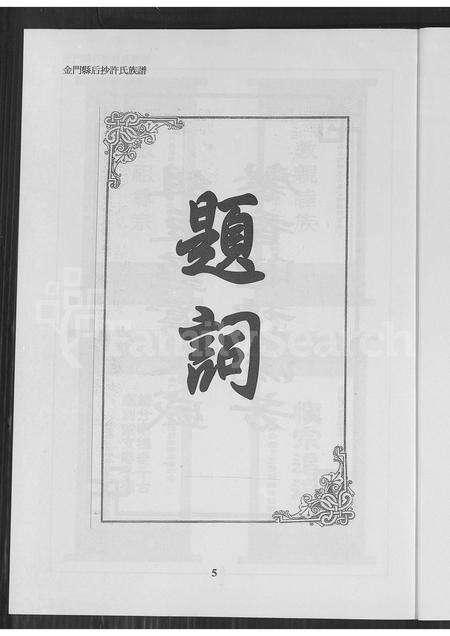 金門縣后抄許氏族譜
題
詞
FamilySearch
5